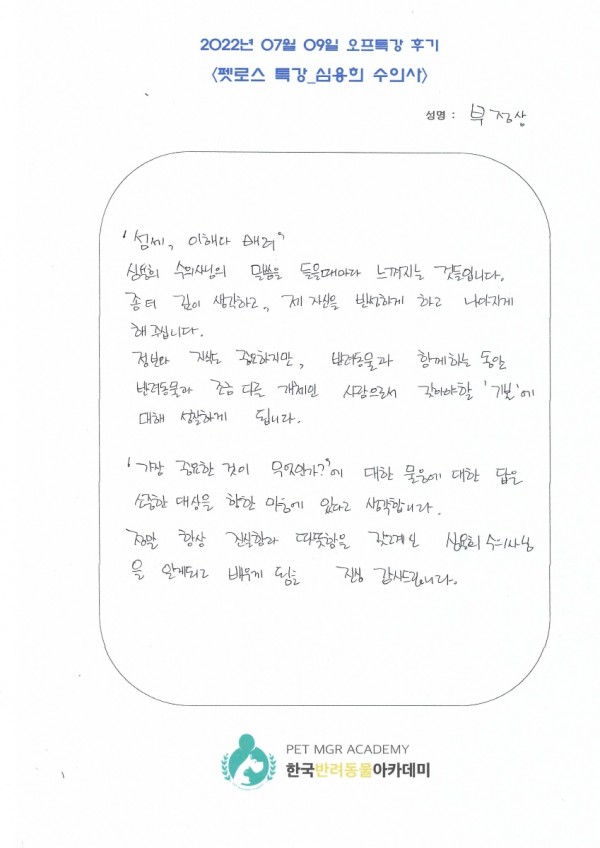 2022년 07월 09일 오프특강 후기
<펫로스 특강_심용희 수의사>
성명 : 부정상
심용희 수의사님의 말씀을 들을때마다 느껴지는 것들입니다.
좀 더 깊이 생각하고, 제 자신을 반성하게 하고 나아지게
해 주십니다.
정보와 지식도 중요하지만, 반려동물과 함께하는 동안
반려동물과 조금 다른 개체인 사람으로서 갖춰야할 '기본'에
대해 성찰하게 됩니다.
'가장 중요한 것이 무엇인가?'에 대한 물음에 대한 답을
소중한 대상을 향한 마음에 있다고 생각합니다.
정말 항상 진실함과 따뜻함을 갖고계신 심용희 수의사님
을 알게되고 배우게 됨을 진심 감사드립니다.
PET MGR ACADEMY
한국반려동물아카데미